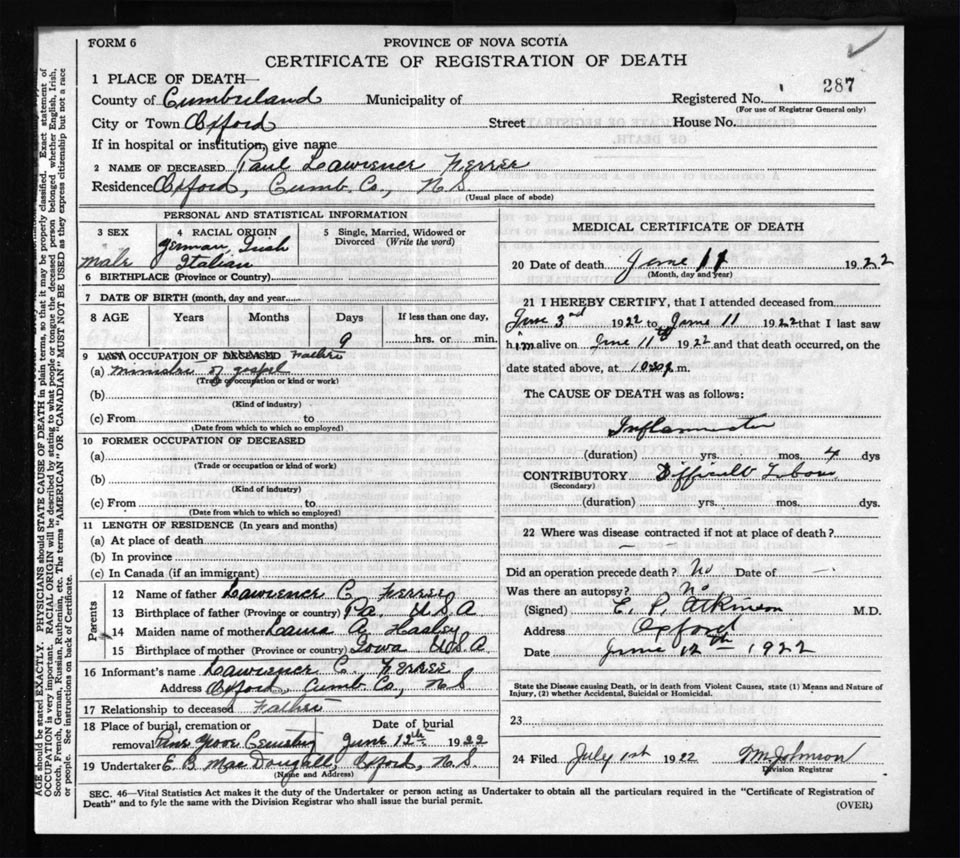 FORM 6
PROVINCE OF NOVA SCOTIA
CERTIFICATE OF REGISTRATION OF DEATH
1 PLACE OF DEATH—
287
County of Cumberland Municipality of Registered No.
(For use of Registrar General only)
City or Town Oxford Street House No.
If in hospital or institution, give name
2 NAME OF DECEASED Paul Lawrence Ferree
Residence Oxford, Cumb. Co., N.S.
(Usual place of abode)
PERSONAL AND STATISTICAL INFORMATION
3 SEX 4 RACIAL ORIGIN 5 Single, Married, Widowed or Divorced (Write the word)
male German, Irish
Italian
6 BIRTHPLACE (Province or Country)
7 DATE OF BIRTH (month, day and year)
8 AGE Years Months Days If less than one day,
9 hrs. or min.
9 LAST OCCUPATION OF DECEASED Father
(a) minister of gospel
(Trade or occupation or kind or work)
(b)
(Kind of industry)
(c) From to
(Date from which to which so employed)
10 FORMER OCCUPATION OF DECEASED
(a)
(Trade or occupation or kind of work)
(b)
(Kind of industry)
(c) From to
(Date from which to which so employed)
11 LENGTH OF RESIDENCE (In years and months)
(a) At place of death
(b) In province
(c) In Canada (if an immigrant)
Parents
12 Name of father Lawrence C. Ferree
13 Birthplace of father (Province or country) Pa. U.S.A
14 Maiden name of mother Laura A.
15 Birthplace of mother (Province or country) Iowa U.S.A.
16 Informant's name Lawrence C. Ferree
Address Oxford, Cumb Co., N.S
17 Relationship to deceased Father
18 Place of burial, cremation or Date of burial
removal Pine Grove Cemetery June 12th 1922
19 Undertaker E. B. MacDougall, Oxford, N.S.
(Name and Address)
MEDICAL CERTIFICATE OF DEATH
20 Date of death June 11 1922
(Month, day and year)
21 I HEREBY CERTIFY, that I attended deceased from
June 3rd 1922 to June 11 1922 that I last saw
him alive on June 11th 1922 and that death occurred, on the
date stated above, at m.
The CAUSE OF DEATH was as follows:
(duration) yrs. mos. 4 dys
CONTRIBUTORY Difficult Labour
(Secondary)
(duration) yrs. mos. dys.
22 Where was disease contracted if not at place of death?
—
Did an operation precede death? No Date of —
Was there an autopsy? No
(Signed) C. P. Atkinson M.D.
Address Oxford
Date June 12th 1922
State the Disease causing Death, or in death from Violent Causes, state (1) Means and Nature of
Injury, (2) whether Accidental, Suicidal or Homicidal.
23
24 Filed July 1st 1922 Johnson
Division Registrar
SEC. 46—Vital Statistics Act makes it the duty of the Undertaker or person acting as Undertaker to obtain all the particulars required in the "Certificate of Registration of
Death" and to fyle the same with the Division Registrar who shall issue the burial permit.
(OVER)
AGE should be stated EXACTLY. PHYSICIANS should STATE CAUSE OF DEATH in plain terms, so that it may be properly classified. Exact statement of
OCCUPATION is very important. RACIAL ORIGIN will be described by stating to what people or tongue the deceased person belonged whether English, Irish,
Scotch, French, German, Russian, Ruthenian, etc. The terms "AMERICAN" OR "CANADIAN" MUST NOT BE USED as they express citizenship but not a race
or people. See instructions on back of Certificate.